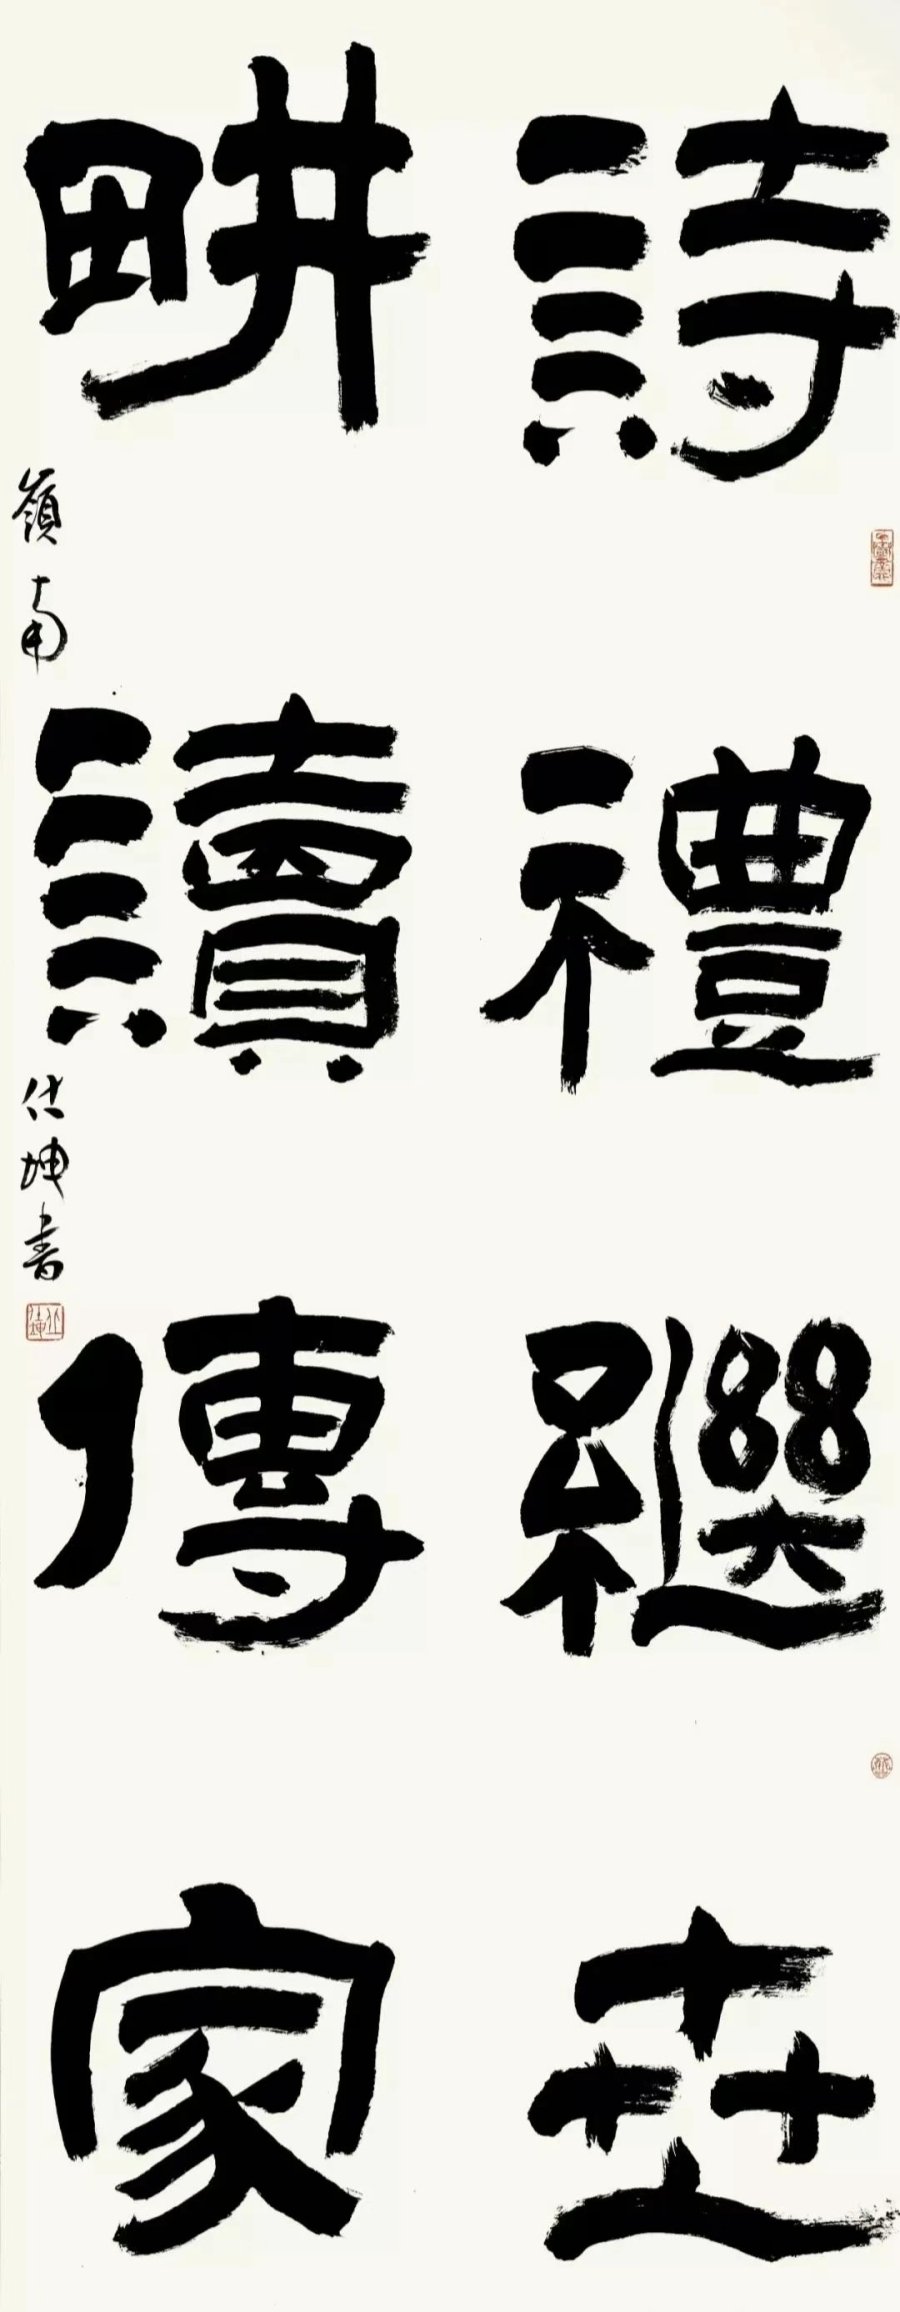 詩禮繼世
畊讀傳家
嶺南
仕坤書